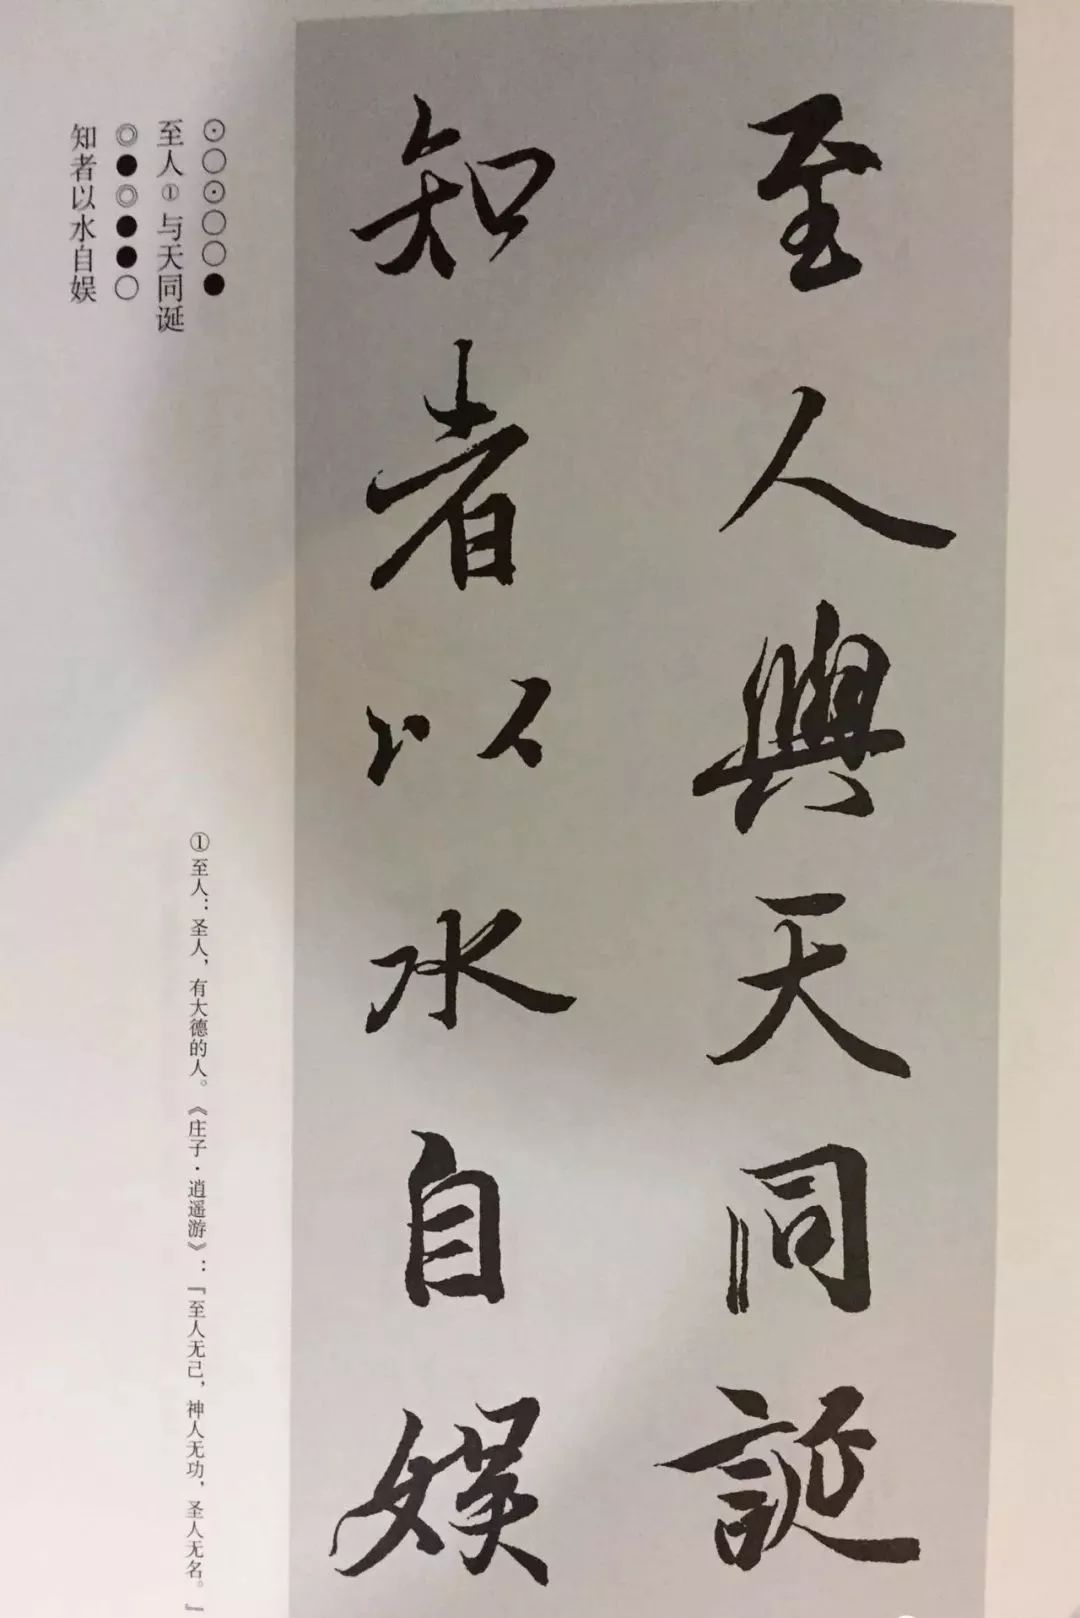 至人與天同誕
知者以水自娱
⊙○⊙○○●
至人①与天同诞
◎●◎●●○
知者以水自娱
①至人：圣人，有大德的人。《庄子·逍遥游》：『至人无己，神人无功，圣人无名。』